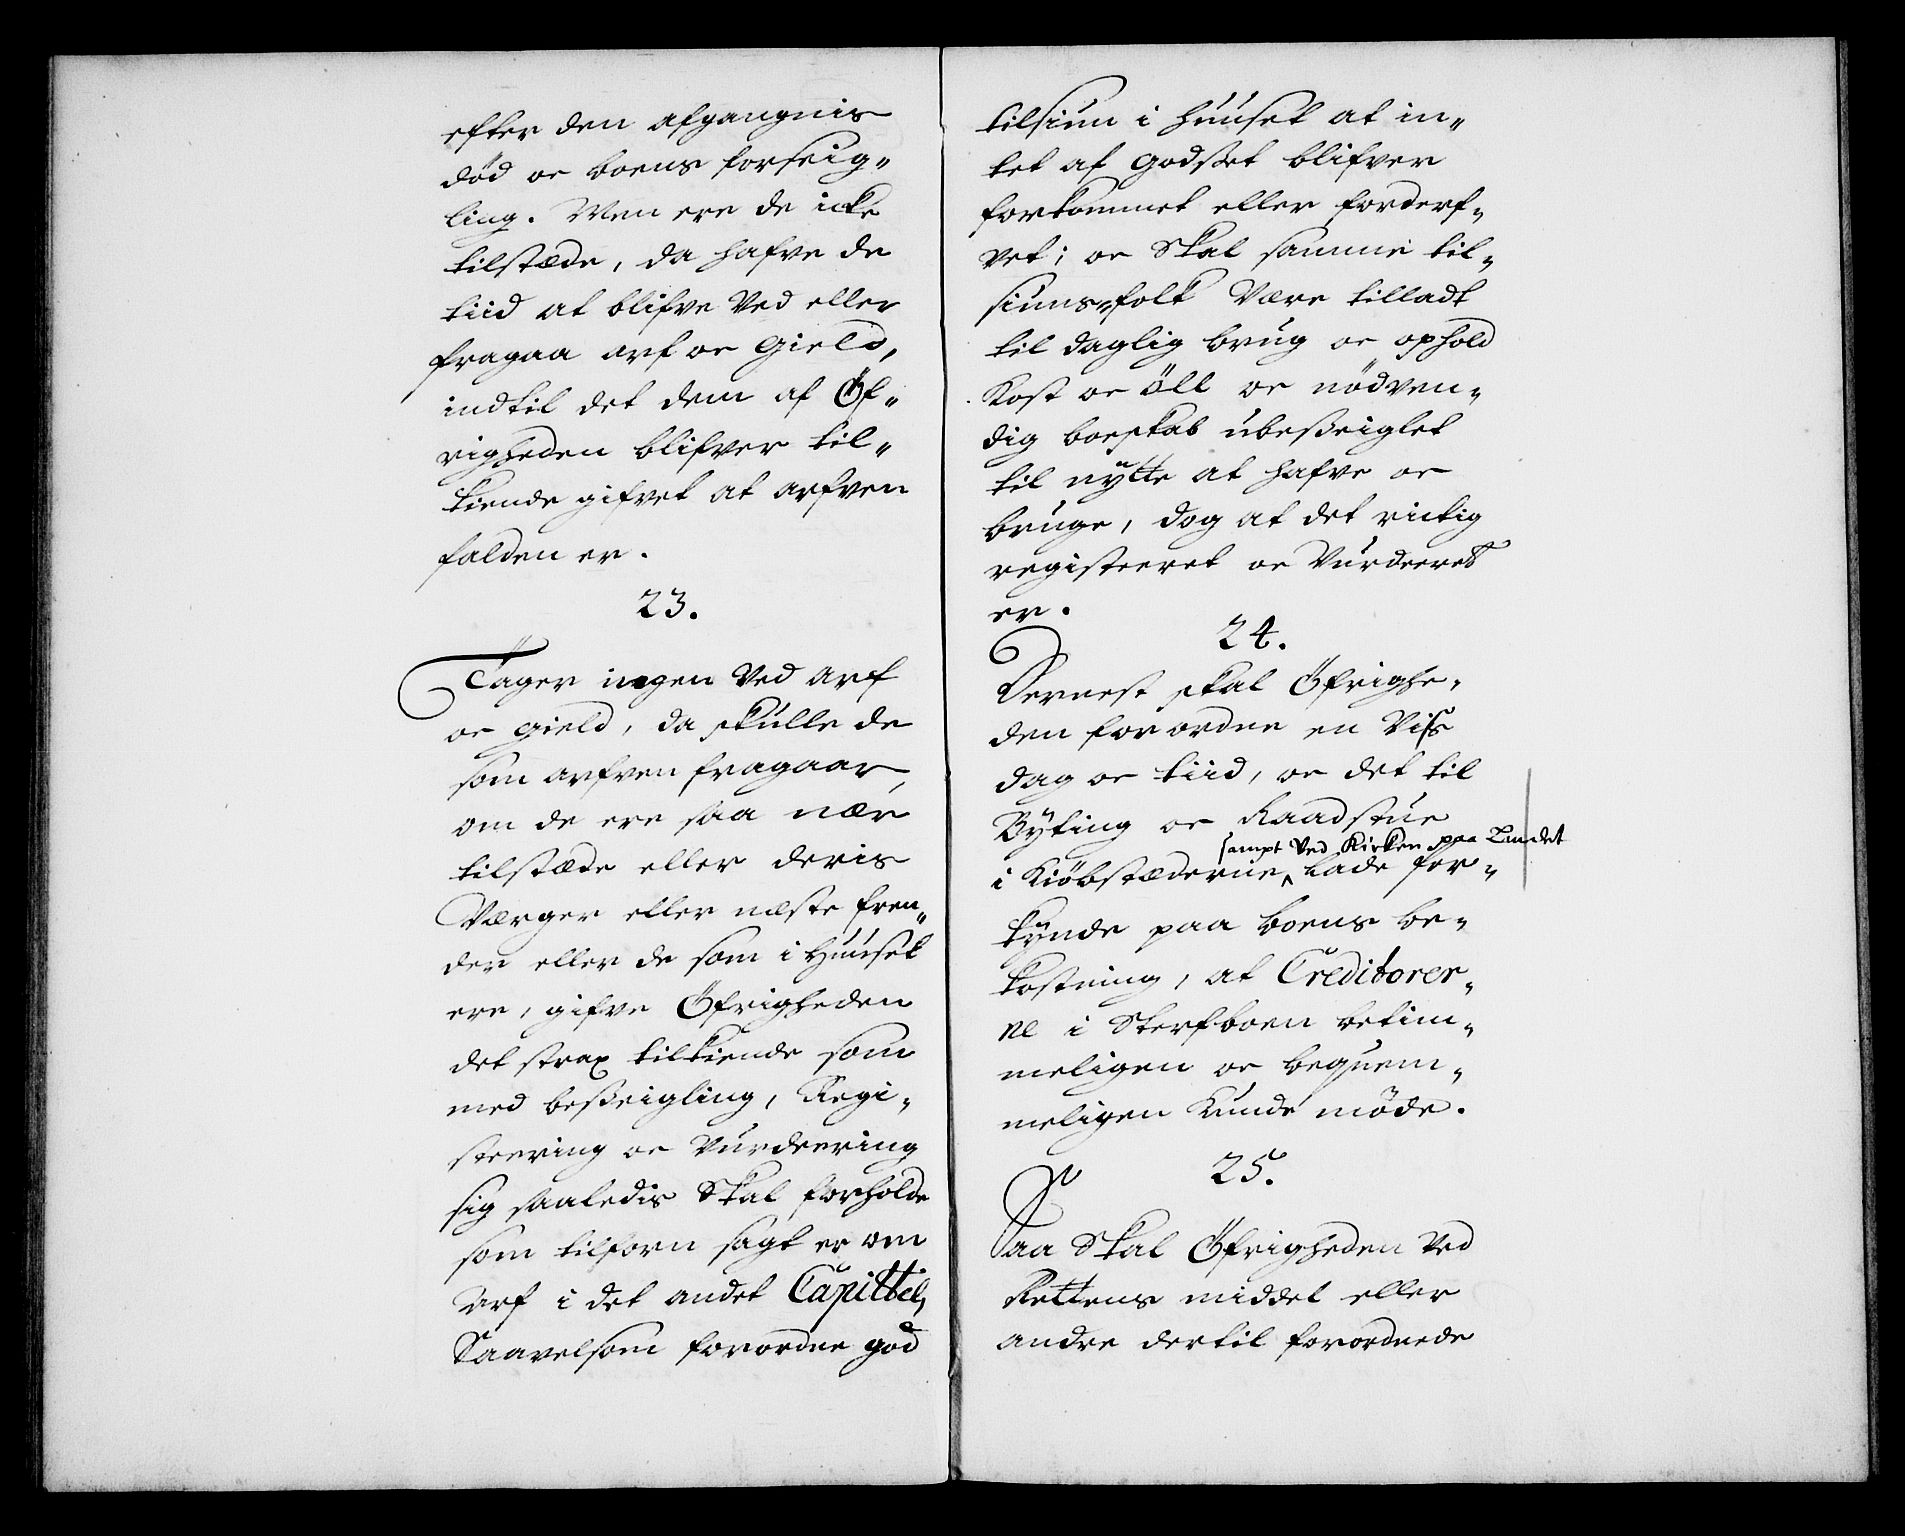 efter den afgangnis
död oc boens forseig„
ling. Men ere de icke
tilstæde, da hafve de
tiid at blifve Ved eller
fragaa arf oc Gield,
indtil det dem af Öf„
righeden blifver til„
kiende gifvet at arfven
falden er.
23.
Tager ingen Ved arf
oc gield, da skulle de
som arfven fragaar,
om de ere saa nær
tilstæde eller deris
Værger eller næste fren„
der eller de som i Huuset
ere, gifve Öfrigheden
det strax tilkiende som
med beßeigling, Regi„
steering oc Vurdeering
sig saaledis Skal forholde
som tilforn sagt er om
Arf i det andet Capittel,
Saavelsom forordne god
tilsiun i huuset at in„
tet af godset blifver
forkommet eller forderf„
vet; oc Skal samme til„
siuns-folk Være tilladt
til daglig brug oc ophold
Kost oc öll oc nödven„
dig boeskab ubeßeiglet
til nytte at hafve oc
bruge, dog at det rictig
registeeret oc Vurdeeret
er.
24.
Dernest skal Öfrighe„
den forordne en Viss
dag oc tiid, oc det til
Byting oc Raadstue
sampt Ved Kirken paa Landet
i Kiöbstæderne, lade for„
kynde paa boens be„
kostning, at Creditorer„
ne i Sterfboen betim„
meligen oc beqvem„
meligen Kunde möde.
25.
Saa Skal Öfrigheden Ved
Rettens middel eller
andre dertil forordnede